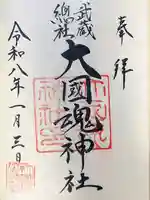 奉拝
武蔵
總社
大國魂神社
令和八年一月三日